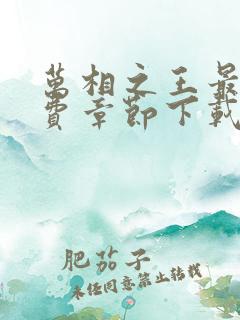 萬相之王最
費章節下載
肥茄子
未经同意禁止转载